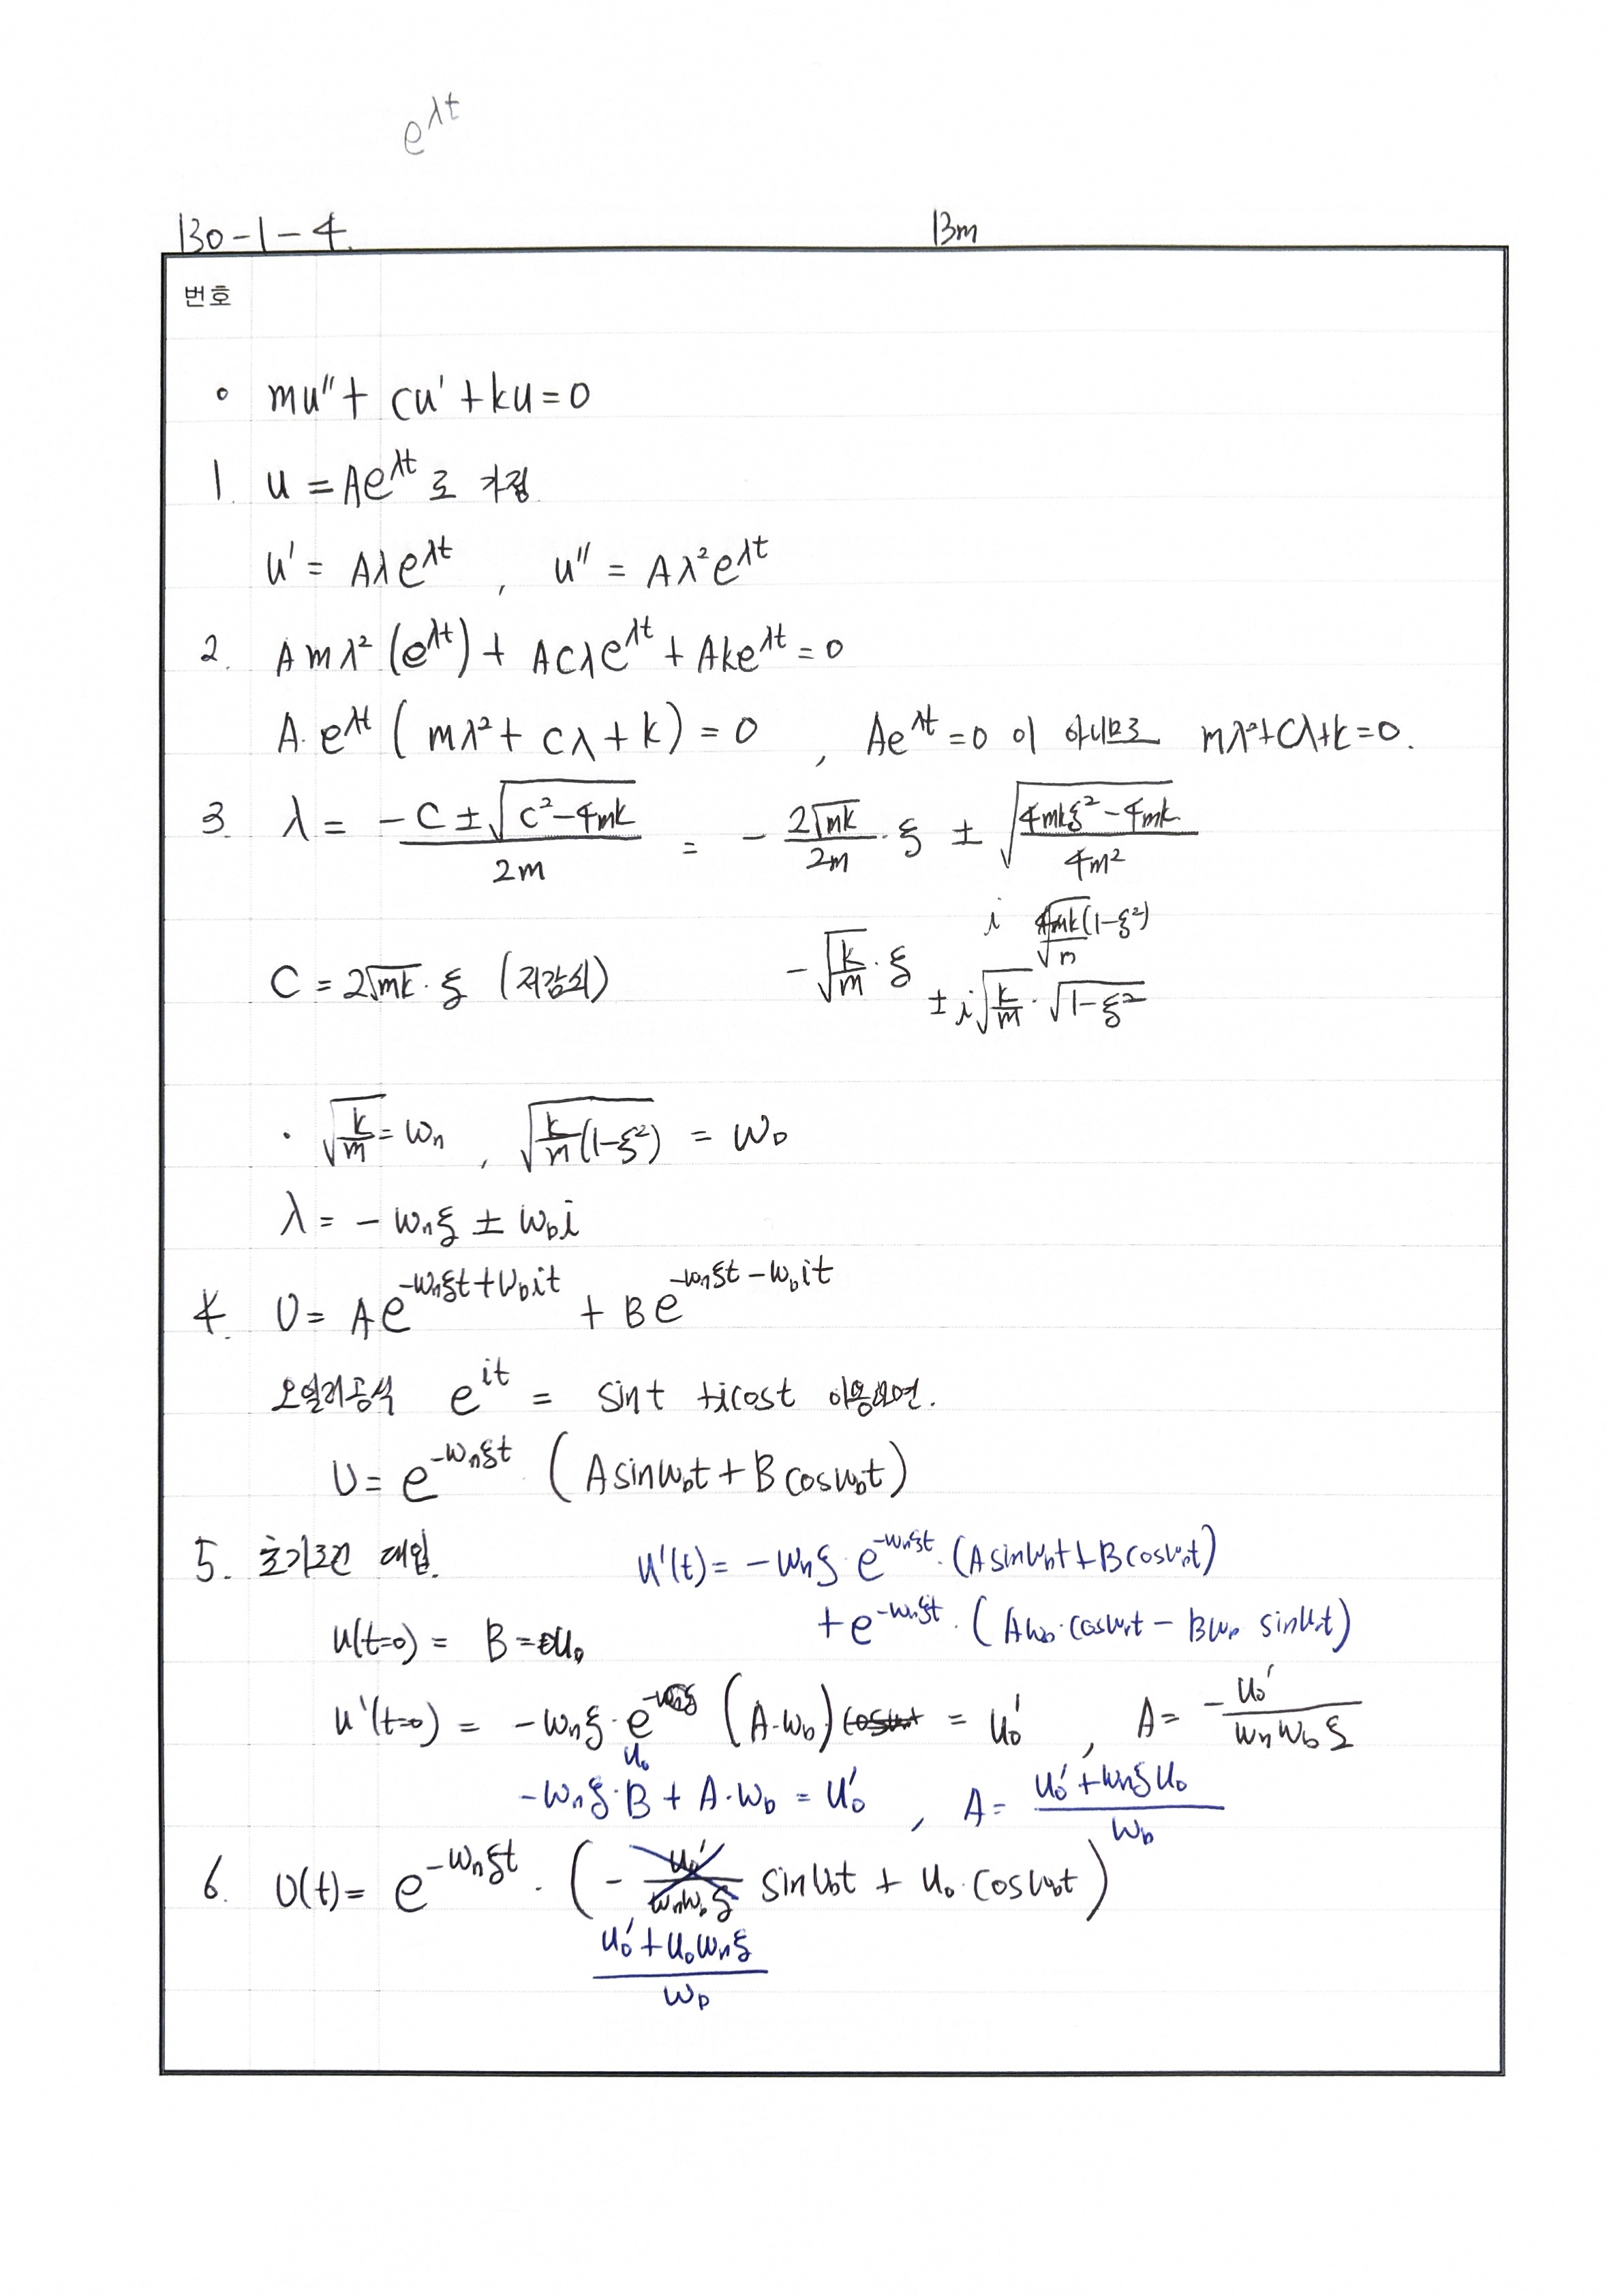 e^λt
130-1-4.
13m
번호
∘ mu″ + cu′ + ku = 0
1. u = Ae^λt 로 가정
u′ = Aλe^λt , u″ = Aλ²e^λt
2. Amλ²(e^λt) + Acλe^λt + Ake^λt = 0
A·e^λt (mλ² + cλ + k) = 0 , Ae^λt = 0 이 아니므로 mλ²+cλ+k=0.
3. λ = (-c ± √(c²-4mk)) / 2m = - (2√mk / 2m)·ξ ± √((4mkξ²-4mk) / 4m²)
i √(1-ξ²)
C = 2√mk·ξ (저감쇠) -√(k/m)·ξ ± i√(k/m)·√(1-ξ²)
· √(k/m) = ωn , √(k/m(1-ξ²)) = ωD
λ = -ωnξ ± ωDi
4. U = Ae^(-ωnξt+ωDit) + Be^(-ωnξt-ωDit)
오일러공식 e^it = sint + icost 이용하면.
U = e^(-ωnξt) (AsinωDt + BcosωDt)
5. 초기조건 대입. u′(t) = -ωnξ·e^(-ωnξt)·(AsinωDt + BcosωDt)
+e^(-ωnξt)·(AωD·cosωDt - BωD sinωDt)
u(t=0) = B = u₀
u′(t=0) = -ωnξ·e (A·ωD) = u₀′ , A = - u₀′ / (ωnωDξ)
u₀
-ωnξ·B + A·ωD = u₀′ , A = (u₀′+ωnξu₀) / ωD
6. U(t) = e^(-ωnξt)·(- u₀′/(ωnωDξ) sinωDt + u₀·cosωDt)
(u₀′+u₀ωnξ) / ωD